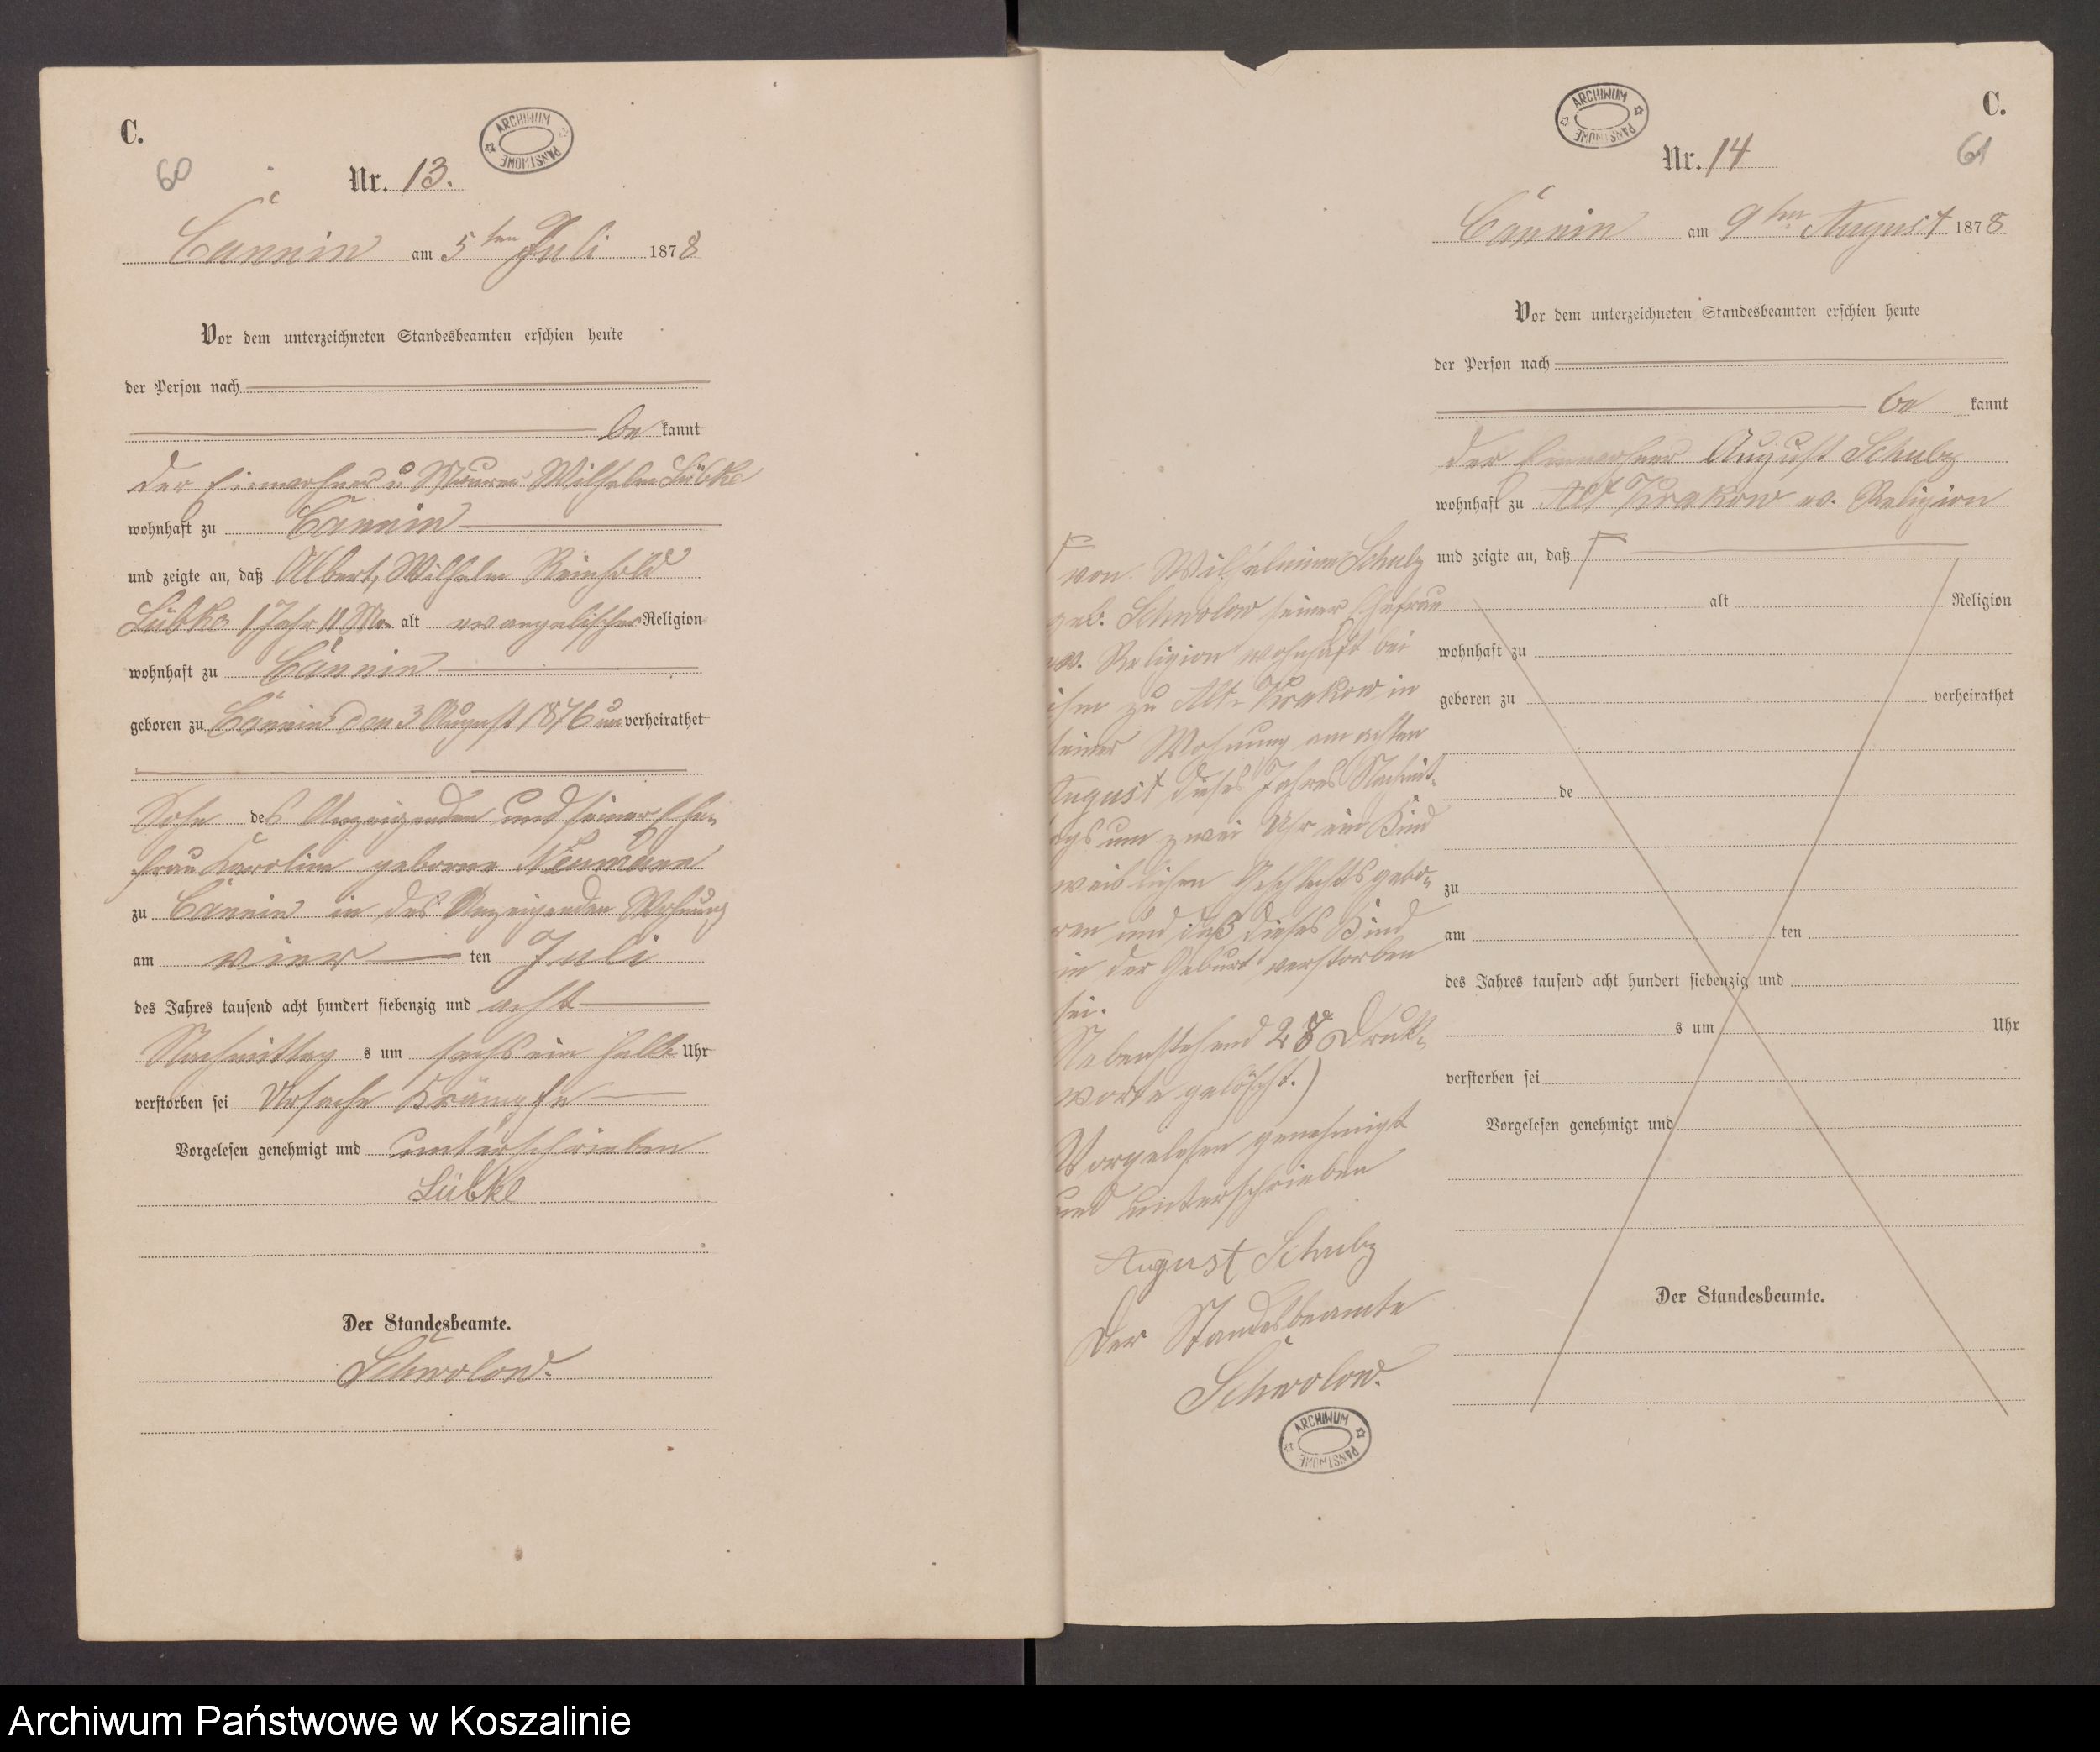 C.
60
ARCHIWUM PAŃSTWOWE
Nr. 13.
Cannin am 5ten Juli 1878
Vor dem unterzeichneten Standesbeamten erschien heute
der Person nach
be kannt
der Einwohner u. Maurer Wilhelm Lübke
wohnhaft zu Cannin
und zeigte an, daß Albert, Wilhelm Reinhold
Lübke 1 Jahr 11 Mon alt evangelischer Religion
wohnhaft zu Cannin
geboren zu Cannin den 3 August 1876 un verheirathet
Sohn des Anzeigenden und seiner Ehe-
frau Karoline geborne Neumann
zu Cannin in des Anzeigenden Wohnung
am vier ten Juli
des Jahres tausend acht hundert siebenzig und acht
Nachmittag s um sechs ein halb Uhr
verstorben sei Ursache Krämpfe
Vorgelesen genehmigt und unterschrieben
Lübke
Der Standesbeamte.
Schwolow.
C.
61
ARCHIWUM PAŃSTWOWE
Nr. 14
Cannin am 9ten August 1878
Vor dem unterzeichneten Standesbeamten erschien heute
der Person nach
be kannt
der Einwohner August Schulz
wohnhaft zu Alt Krakow ev. Religion
und zeigte an, daß
alt Religion
wohnhaft zu
geboren zu verheirathet
de
zu
am ten
des Jahres tausend acht hundert siebenzig und
s um Uhr
verstorben sei
Vorgelesen genehmigt und
Der Standesbeamte.
von Wilhelmine Schulz
geb. Schwolow seiner Ehefrau
ev. Religion wohnhaft bei
ihm zu Alt-Krakow in
seiner Wohnung am achten
August dieses Jahres Nachmit-
tags um zwei Uhr ein Kind
weiblichen Geschlechts gebo-
ren und daß dieses Kind
in der Geburt verstorben
sei.
Nebenstehend 28 Druck-
worte gelöscht.)
Vorgelesen genehmigt
und unterschrieben
August Schulz
Der Standesbeamte
Schwolow.
ARCHIWUM PAŃSTWOWE
Archiwum Państwowe w Koszalinie